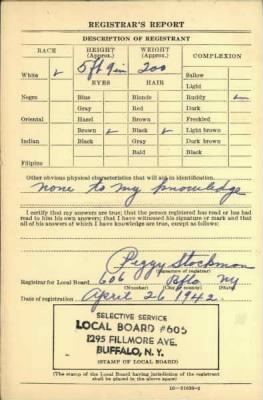 REGISTRAR'S REPORT
DESCRIPTION OF REGISTRANT
RACE HEIGHT (Approx.) WEIGHT (Approx.) COMPLEXION
White ✓ 5 ft 9 in 200 Sallow
EYES HAIR Light
Negro Blue Blonde Ruddy ✓
Gray Red Dark
Oriental Hazel Brown Freckled
Brown ✓ Black ✓ Light brown
Indian Black Gray Dark brown
Bald Black
Filipino
Other obvious physical characteristics that will aid in identification
none to my knowledge
I certify that my answers are true; that the person registered has read or has had
read to him his own answers; that I have witnessed his signature or mark and that
all of his answers of which I have knowledge are true, except as follows:
Peggy Stockman
(Signature of registrar)
Registrar for Local Board 606 Bflo NY
(Number) (City or county) (State)
Date of registration April 26 1942
SELECTIVE SERVICE
LOCAL BOARD #605
1295 FILLMORE AVE.
BUFFALO, N.Y.
(STAMP OF LOCAL BOARD)
(The stamp of the Local Board having jurisdiction of the registrant
shall be placed in the above space)